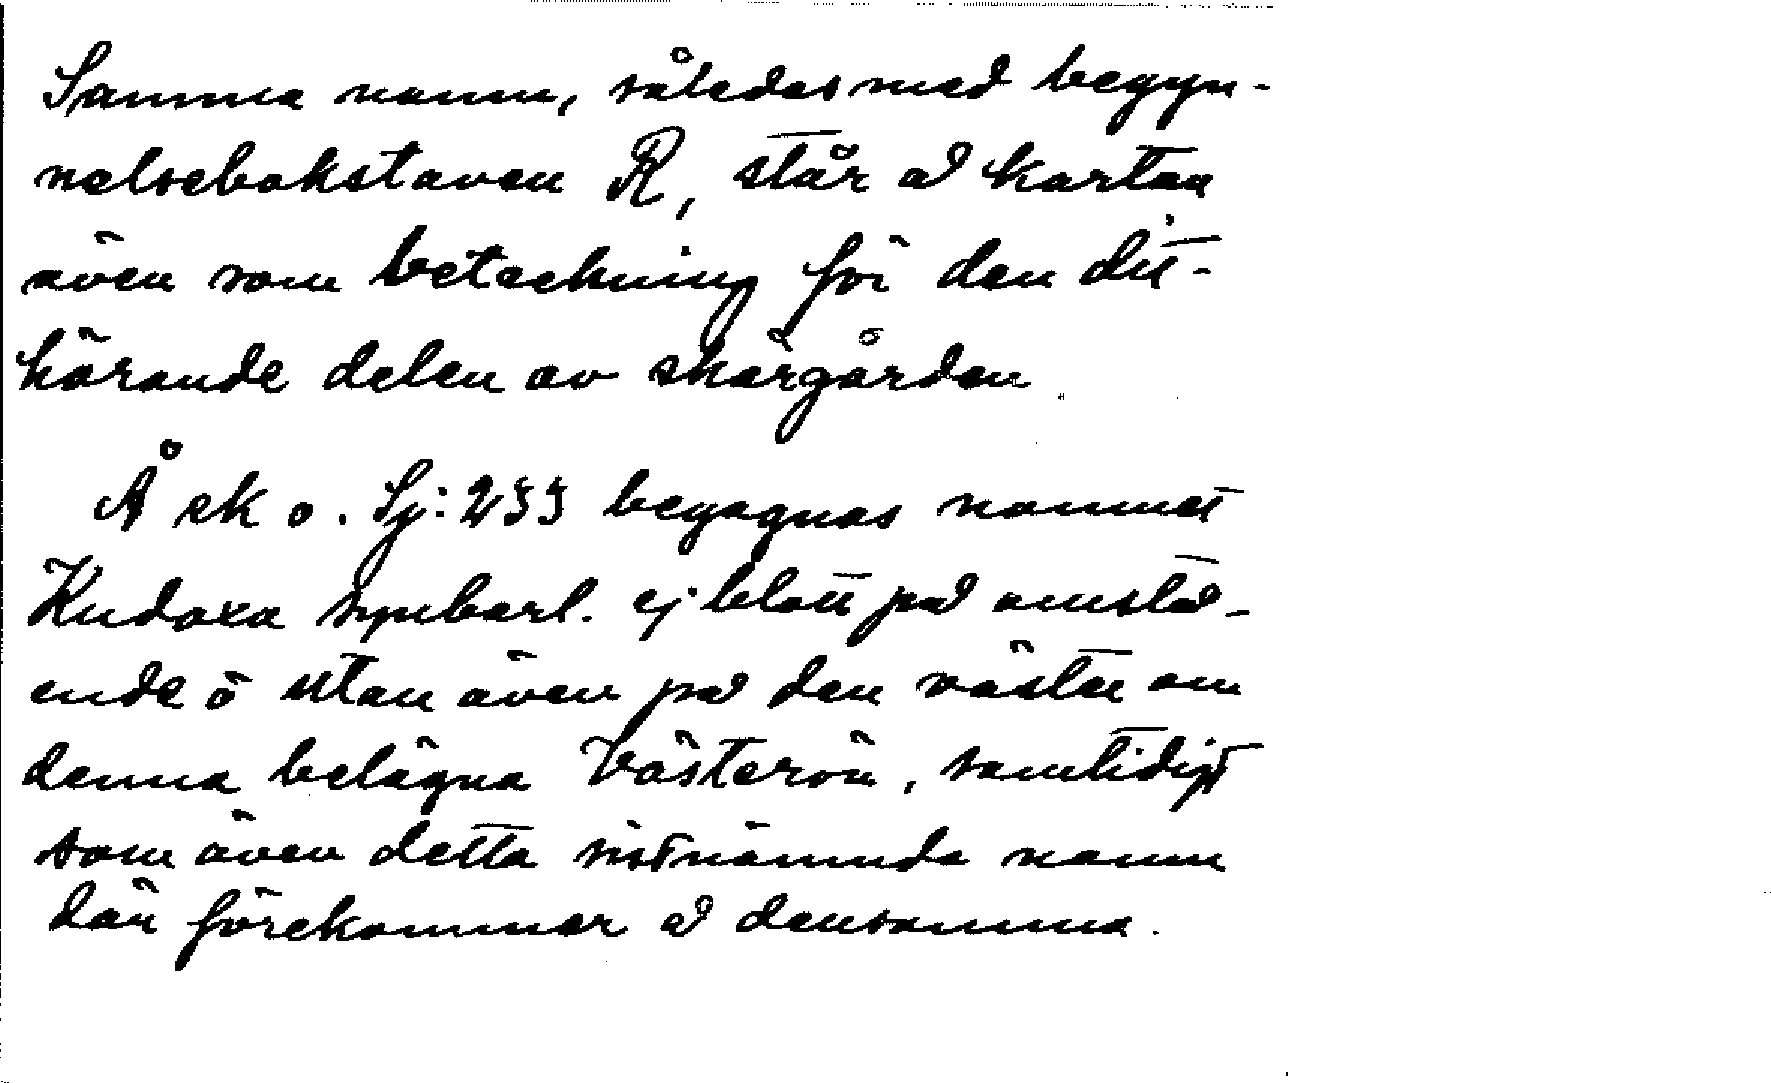 Samma namn, således med begyn-
nelsebokstaven R, står å kartan
även som beteckning för den dit-
hörande delen av skärgården
Å ek o. Sj: 233 begagnas namnet
Kudoxa synbarl. ej blott på omstå-
ende ö utan även på den väster om
denna belägna Västerön, samtidigt
som även detta sistnämnda namn
där förekommer å densamma.